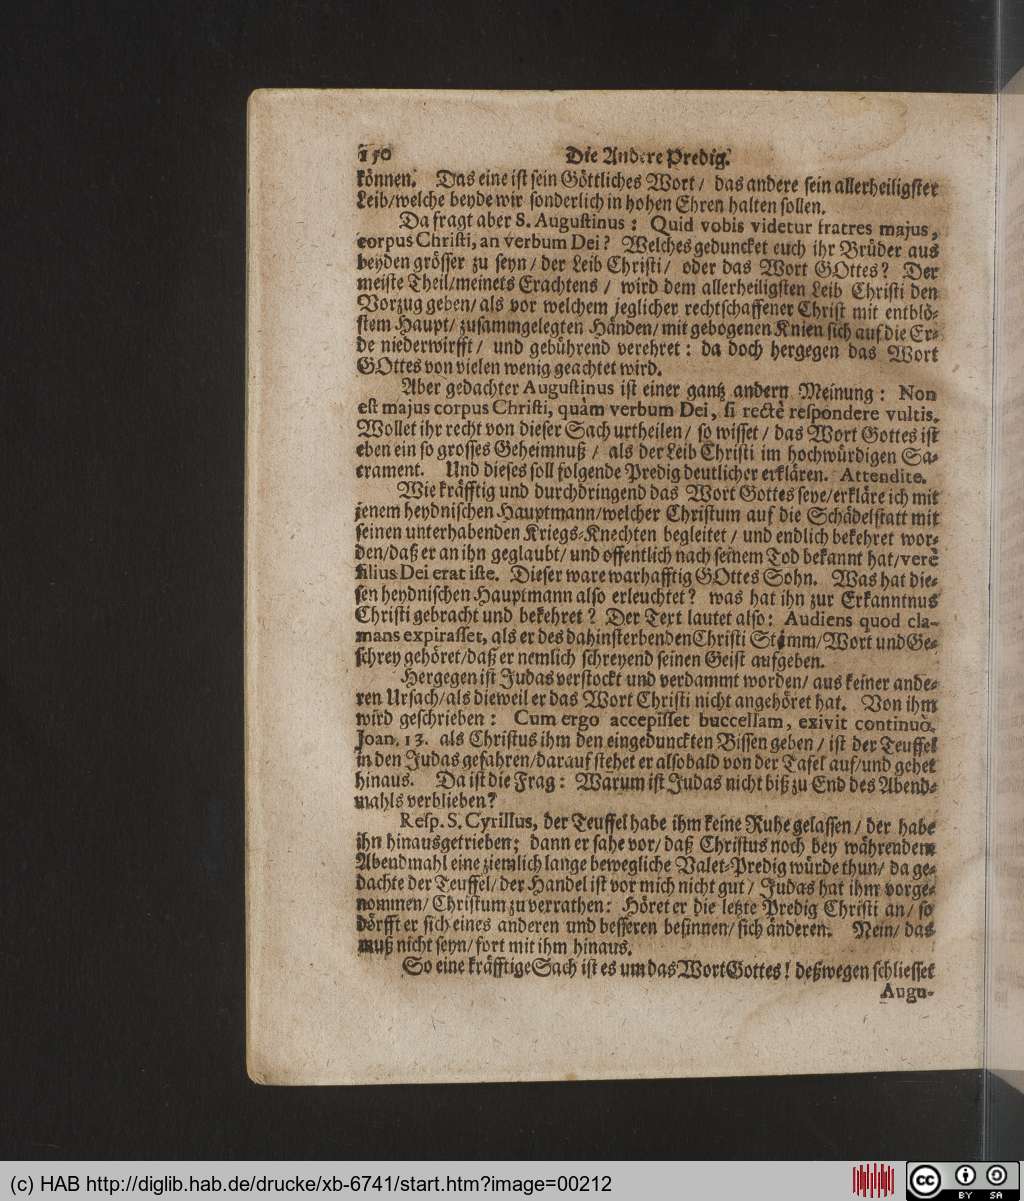 150 Die Andere Predig.
können. Das eine ist sein Göttliches Wort/ das andere sein allerheiligster
Leib/welche beyde wir sonderlich in hohen Ehren halten sollen.
Da fragt aber S. Augustinus: Quid vobis videtur fratres majus,
corpus Christi, an verbum Dei? Welches geduncket euch ihr Brüder aus
beyden grösser zu seyn/ der Leib Christi/ oder das Wort GOttes? Der
meiste Theil/meinets Erachtens/ wird dem allerheiligsten Leib Christi den
Vorzug geben/ als vor welchem jeglicher rechtschaffener Christ mit entblö-
stem Haupt/ zusammgelegten Händen/ mit gebogenen Knien sich auf die Er-
de niederwirfft/ und gebührend verehret: da doch hergegen das Wort
GOttes von vielen wenig geachtet wird.
Aber gedachter Augustinus ist einer gantz andern Meinung: Non
est majus corpus Christi, quàm verbum Dei, si rectè respondere vultis.
Wollet ihr recht von dieser Sach urtheilen/ so wisset/ das Wort Gottes ist
eben ein so grosses Geheimnuß/ als der Leib Christi im hochwürdigen Sa-
crament. Und dieses soll folgende Predig deutlicher erklären. Attendite.
Wie kräfftig und durchdringend das Wort Gottes seye/erkläre ich mit
jenem heydnischen Hauptmann/welcher Christum auf die Schädelstatt mit
seinen unterhabenden Kriegs-Knechten begleitet/ und endlich bekehret wor-
den/daß er an ihn geglaubt/ und offentlich nach seinem Tod bekannt hat/verè
filius Dei erat iste. Dieser ware warhafftig GOttes Sohn. Was hat die-
sen heydnischen Hauptmann also erleuchtet? was hat ihn zur Erkanntnus
Christi gebracht und bekehret? Der Text lautet also: Audiens quod cla-
mans expirasset, als er des dahinsterbenden Christi Stimm/Wort und Ge-
schrey gehöret/daß er nemlich schreyend seinen Geist aufgeben.
Hergegen ist Judas verstockt und verdammt worden/ aus keiner ande-
ren Ursach/als dieweil er das Wort Christi nicht angehöret hat. Von ihm
wird geschrieben: Cum ergo accepisset buccellam, exivit continuò.
Joan. 13. als Christus ihm den eingedunckten Bissen geben/ ist der Teuffel
in den Judas gefahren/darauf stehet er alsobald von der Tafel auf/und gehet
hinaus. Da ist die Frag: Warum ist Judas nicht biß zu End des Abend-
mahls verblieben?
Resp. S. Cyrillus, der Teuffel habe ihm keine Ruhe gelassen/ der habe
ihn hinausgetrieben; dann er sahe vor/ daß Christus noch bey währendem
Abendmahl eine ziemlich lange bewegliche Valet-Predig würde thun/ da ge-
dachte der Teuffel/ der Handel ist vor mich nicht gut/ Judas hat ihm vorge-
nommen/ Christum zu verrathen: Höret er die letzte Predig Christi an/ so
dörfft er sich eines anderen und besseren besinnen/ sich änderen. Nein/ das
muß nicht seyn/ fort mit ihm hinaus.
So eine kräfftige Sach ist es um das Wort Gottes! deßwegen schliesset
Augu-
(c) HAB http://diglib.hab.de/drucke/xb-6741/start.htm?image=00212
cc BY SA